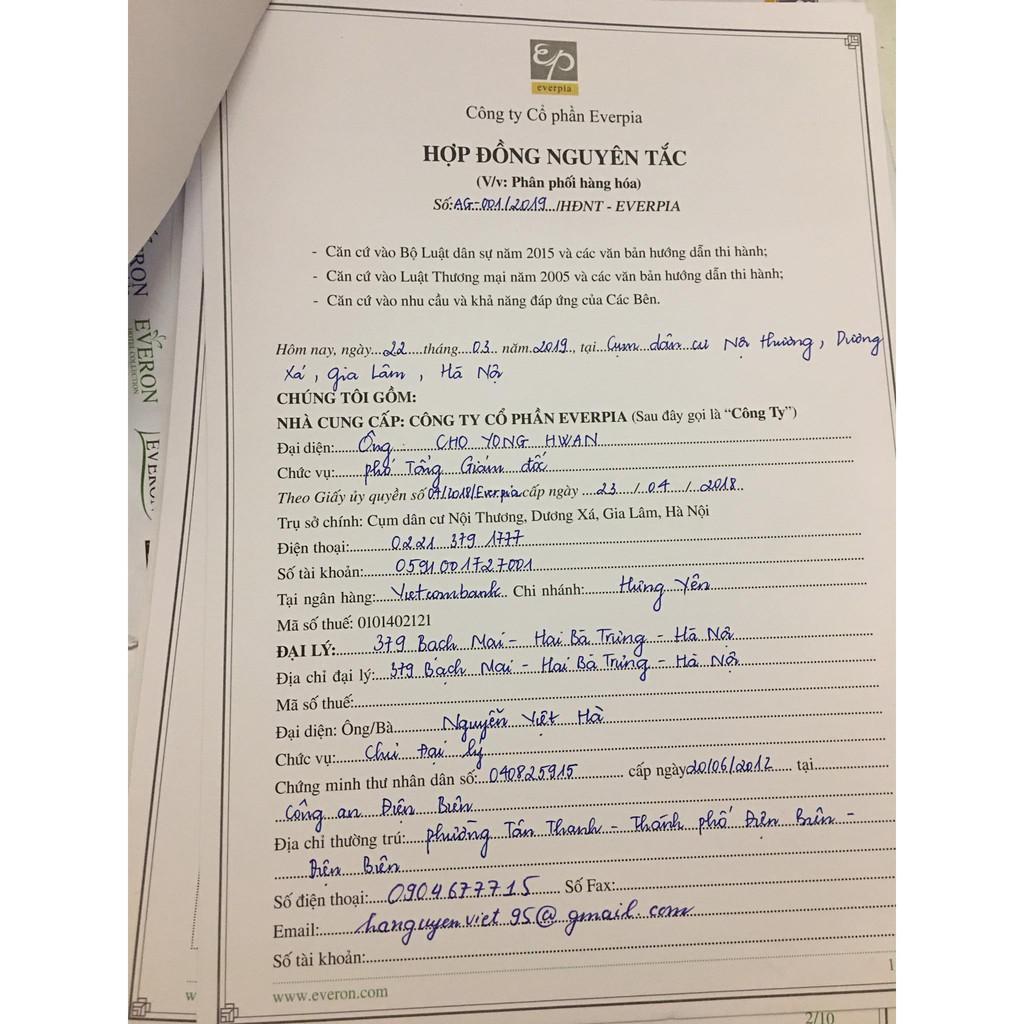 everpia
Công ty Cổ phần Everpia
HỢP ĐỒNG NGUYÊN TẮC
(V/v: Phân phối hàng hóa)
Số:AG-001/2019../HĐNT - EVERPIA
- Căn cứ vào Bộ Luật dân sự năm 2015 và các văn bản hướng dẫn thi hành;
- Căn cứ vào Luật Thương mại năm 2005 và các văn bản hướng dẫn thi hành;
- Căn cứ vào nhu cầu và khả năng đáp ứng của Các Bên.
Hôm nay, ngày...22....tháng...03.. năm.2019., tại...Cụm dân cư Nội thương, Dương
Xá, Gia Lâm, Hà Nội
CHÚNG TÔI GỒM:
NHÀ CUNG CẤP: CÔNG TY CỔ PHẦN EVERPIA (Sau đây gọi là “Công Ty”)
Đại diện:....Ông CHO YONG HWAN
Chức vụ:....phó Tổng Giám đốc
Theo Giấy ủy quyền số 04/2018/Everpia cấp ngày ...23.../04.../..2018..
Trụ sở chính: Cụm dân cư Nội Thương, Dương Xá, Gia Lâm, Hà Nội
Điện thoại:.......0221 379 1777
Số tài khoản:......0591001727001
Tại ngân hàng:...Vietcombank.. Chi nhánh:.......Hưng Yên
Mã số thuế: 0101402121
ĐẠI LÝ:......379 Bạch Mai - Hai Bà Trưng - Hà Nội
Địa chỉ đại lý:..379 Bạch Mai - Hai Bà Trưng - Hà Nội
Mã số thuế:
Đại diện: Ông/Bà........Nguyễn Việt Hà
Chức vụ:.....Chủ Đại lý
Chứng minh thư nhân dân số:..040825915........... cấp ngày20/06/2012..... tại
Công an Điện Biên
Địa chỉ thường trú:...phường Tân Thanh - Thành phố Điện Biên -
Điện Biên
Số điện thoại:...0904677715..... Số Fax:
Email:......hanguyenviet95@gmail.com
Số tài khoản:
1
www.everon.com
2/10
EVERON
HOTEL COLLECTION
RON
EVERON
w